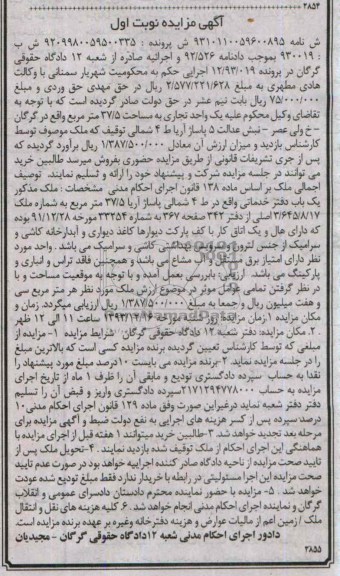 ۲۸۵۴
آگهی مزایده نوبت اول
ش نامه ۹۳۱۰۱۱۰۰۵۹۶۰۰۸۹۵ ش پرونده : ۹۲۰۹۹۸۰۰۵۹۵۰۰۳۳۵ ش ب
: ۹۳۰۰۱۹ بموجب دادنامه ۹۲/۵۲۶ و اجرائیه صادره از شعبه ۱۲ دادگاه حقوقی
گرگان در پرونده ۱۲/۹۳/۰۱۹ اجرایی حکم به محکومیت شهریار سمنانی با وکالت
هادی مطهری به مبلغ ۲/۵۷۷/۲۲۱/۶۲۸ ریال در حق مهدی حق وردی و مبلغ
۷۵/۰۰۰/۰۰۰ ریال بابت نیم عشر در حق دولت صادر گردیده است که با توجه به
تقاضای وکیل محکوم علیه یک واحد تجاری به مساحت ۳۷/۵ متر مربع واقع در گرگان
– خ ولی عصر – نبش عدالت ۵ پاساژ آریا ط ۴ شمالی توقیف که ملک موصوف توسط
کارشناس بازدید و میزان ارزش آن معادل ۱/۳۸۷/۵۰۰/۰۰۰ ریال برآورد گردیده که
پس از جری تشریفات قانونی از طریق مزایده حضوری بفروش میرسد طالبین خرید
می توانند در جلسه مزایده شرکت و پیشنهاد خود را ارائه و تسلیم نمایند. توصیف
اجمالی ملک بر اساس ماده ۱۳۸ قانون اجرای احکام مدنی مشخصات : ملک مذکور
یک باب دفتر خدماتی واقع در ط ۴ شمالی پاساژ آریا ۳۷/۵ متر مربع به شماره ملک
۳/۶۴۵/۸/۱۷ اصلی از دفتر ۳۴۲ صفحه ۳۶۷ به شماره ۳۳۲۵۴ مورخه ۹۱/۱۲/۲۸ بوده
که دارای هال و یک اتاق کار با کف پارکت دیوارها کاغذ دیواری و آبدارخانه کاشی و
سرامیک از جنس لترون و سرویس بهداشتی کاشی و سرامیک می باشد . واحد مورد
نظر دارای امتیاز برق مستقل و آب مشاع می باشد و همچنین فاقد تراس و انباری و
پارکینگ می باشد. ارزیابی: بابررسی بعمل آمده و با توجه به موقعیت مساحت و با
در نظر گرفتن تمامی عوامل موثر در موضوع ارزش ملک مورد نظر هر متر مربع سی
و هفت میلیون ریال و جمعا به مبلغ ۱/۳۸۷/۵۰۰/۰۰۰ ریال ارزیابی میگردد. زمان و
مکان مزایده ۱.زمان مزایده روز شنبه مورخه ۱۳۹۳/۴/۱۶ ساعت ۱۱ الی ۱۲ ظهر
. ۲. مکان مزایده: دفتر شعبه ۱۲ دادگاه حقوقی گرگان شرایط مزایده ۱- مزایده از
مبلغی که توسط کارشناس تعیین گردیده برنده مزایده کسی است که بالاترین مبلغ
را در جلسه مزایده نماید. ۲- برنده مزایده می بایست ۱۰درصد مبلغ مورد پیشنهاد را
نقدا به حساب سپرده دادگستری تودیع و مابقی آن را ظرف ۱ ماه از تاریخ اجرای
مزایده به حساب ۲۱۷۱۲۹۴۷۷۸۰۰۰سپرده دادگستری واریز و قبض آن را تسلیم
دفتر دفتر شعبه نماید درغیراین صورت وفق ماده ۱۲۹ قانون اجرای احکام مدنی ۱۰
درصدسپرده پس از کسر هزینه های اجرایی به نفع دولت ضبط و آگهی مزایده برای
مرحله بعد تجدید خواهد شد. ۳-طالبین خرید میتوانند ۱ هفته قبل از اجرای مزایده با
هماهنگی این اجرای احکام از ملک توقیف شده بازدید نمایند . ۴-تحویل ملک پس از
تایید صحت مزایده از ناحیه دادگاه صادر کننده اجراییه خواهد بود در صورت عدم تایید
صحت مزایده این اجرا مسئولیتی در رابطه با خریدار ندارد فقط مبلغ تودیع شده عودت
خواهد شد . ۵- مزایده با حضور نماینده محترم دادستان دادسرای عمومی و انقلاب
گرگان و نماینده اجرای احکام مدنی انجام خواهد شد . ۶. کلیه هزینه های نقل و انتقال
ملک / زمین اعم از مالیات عوارض و هزینه دفترخانه وغیره بر عهده برنده مزایده است.
دادور اجرای احکام مدنی شعبه ۱۲دادگاه حقوقی گرگان - مجیدیان
۲۸۵۵